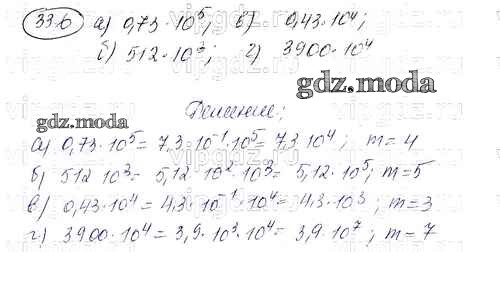 33.6 а) 0,73·10⁵; в) 0,43·10⁴;
б) 512·10³; г) 3900·10⁴
gdz.moda
Решение:
gdz.moda
а) 0,73·10⁵ = 7,3·10⁻¹·10⁵ = 7,3·10⁴; m=4
б) 512·10³ = 5,12·10²·10³ = 5,12·10⁵; m=5
в) 0,43·10⁴ = 4,3·10⁻¹·10⁴ = 4,3·10³; m=3
г) 3900·10⁴ = 3,9·10³·10⁴ = 3,9·10⁷; m=7